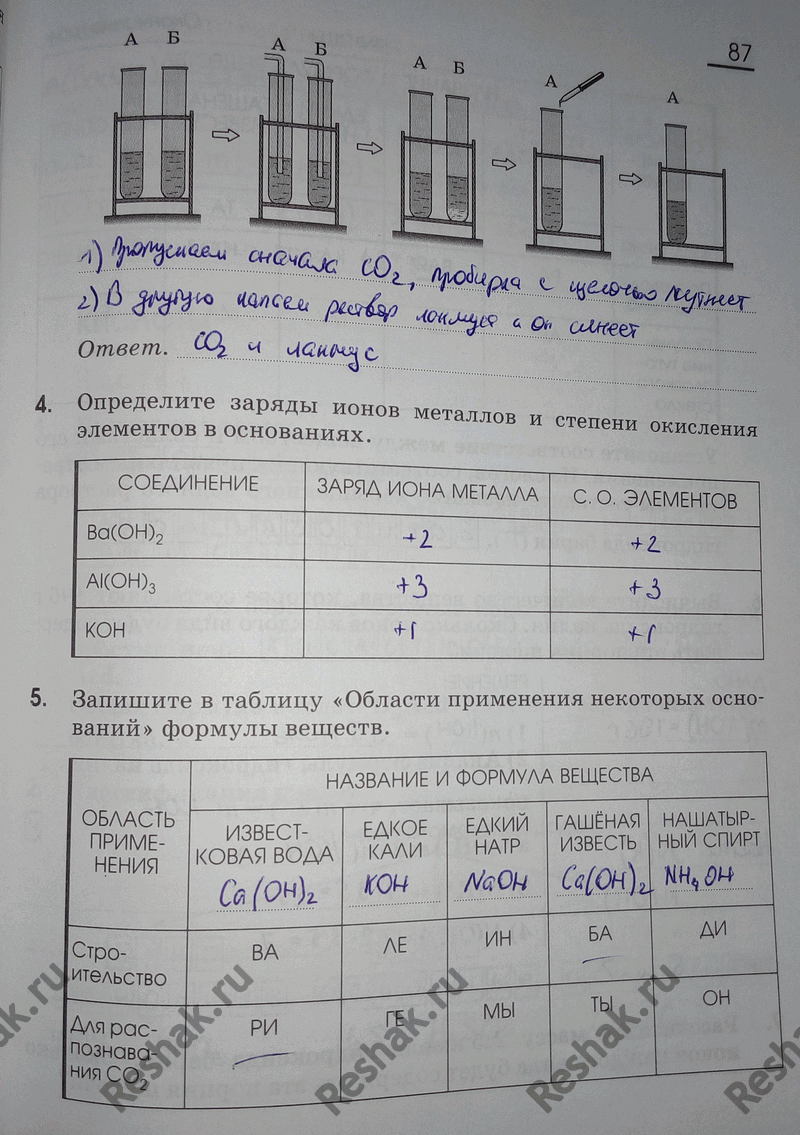 87
А Б А Б А Б А А
1) Пропускаем сначала CO₂, пробирка с щелочью мутнеет
2) В другую капаем раствор лакмуса и он синеет
Ответ. CO₂ и лакмус
4. Определите заряды ионов металлов и степени окисления
элементов в основаниях.
СОЕДИНЕНИЕ ЗАРЯД ИОНА МЕТАЛЛА С. О. ЭЛЕМЕНТОВ
Ba(OH)₂ +2 +2
Al(OH)₃ +3 +3
KOH +1 +1
5. Запишите в таблицу «Области применения некоторых осно-
ваний» формулы веществ.
ОБЛАСТЬ
ПРИМЕ-
НЕНИЯ
НАЗВАНИЕ И ФОРМУЛА ВЕЩЕСТВА
ИЗВЕСТ-
КОВАЯ ВОДА
Ca(OH)₂
ЕДКОЕ
КАЛИ
KOH
ЕДКИЙ
НАТР
NaOH
ГАШЁНАЯ
ИЗВЕСТЬ
Ca(OH)₂
НАШАТЫР-
НЫЙ СПИРТ
NH₄OH
Стро-
ительство
ВА ЛЕ ИН БА ДИ
Для рас-
познава-
ния CO₂
РИ ГЕ МЫ ТЫ ОН
Reshak.ru
Reshak.ru
Reshak.ru